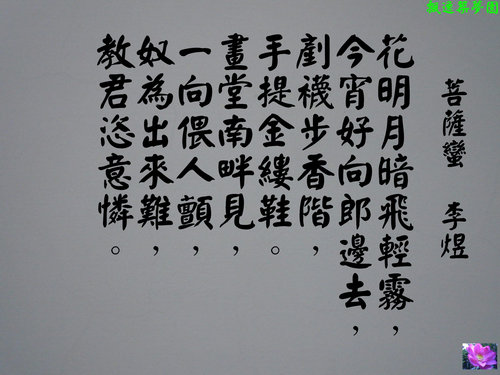 飄逸築夢園
菩薩蠻 李煜
花明月暗飛輕霧，
今宵好向郎邊去，
剷襪步香階，
手提金縷鞋。
畫堂南畔見，
一向偎人顫，
奴為出來難，
教君恣意憐。